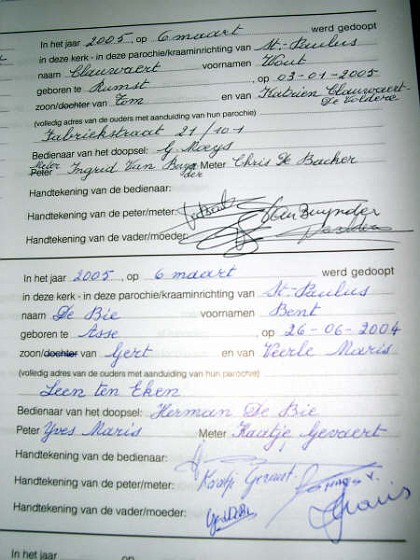 In het jaar 2005, op 6 maart werd gedoopt
in deze kerk - in deze parochie/kraaminrichting van St.-Paulus
naam Clauwaert voornamen Wout
geboren te Rumst, op 03-01-2005
zoon/dochter van Tom en van Katrien Clauwaert-
De Voldere
(volledig adres van de ouders met aanduiding van hun parochie)
Fabriekstraat 21/101
Bedienaar van het doopsel: G. Maeys
Meter
Peter Ingrid Van Buynder Meter Chris De Backer
Handtekening van de bedienaar:
Handtekening van de peter/meter: Van Buynder
Handtekening van de vader/moeder:
In het jaar 2005, op 6 maart werd gedoopt
in deze kerk - in deze parochie/kraaminrichting van St.-Paulus
naam De Bie voornamen Bent
geboren te Asse, op 26-06-2004
zoon/dochter van Gert en van Veerle Maris
(volledig adres van de ouders met aanduiding van hun parochie)
Leen ten Eken
Bedienaar van het doopsel: Herman De Bie
Peter Yves Maris Meter Kaatje Gevaert
Handtekening van de bedienaar:
Handtekening van de peter/meter: Kaatje Gevaert
Handtekening van de vader/moeder: Maris
In het jaar op